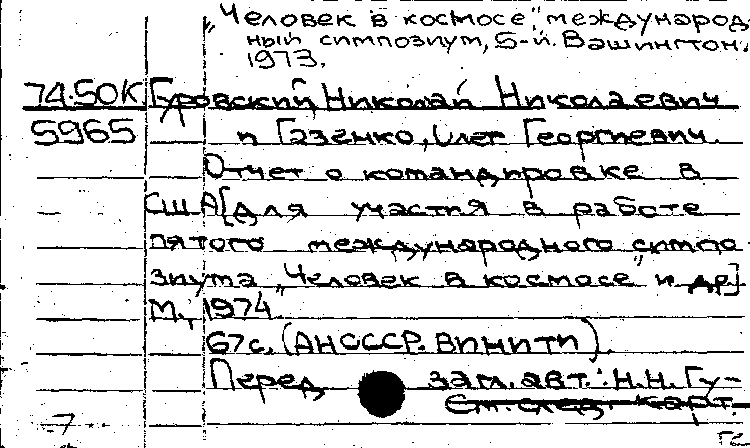 „Человек в космосе", международ
ный симпозиум, 5-й. Вашингтон.
1973.
74-50К Гуровский, Николай Николаевич
5965 и Газенко, Олег Георгиевич.
Отчет о командировке в
США [для участия в работе
пятого международного симпо
зиума „Человек в космосе" и др]
М., 1974.
67с. (АН СССР. ВИНИТИ).
Перед загл. авт.: Н.Н. Гу-
См. след. карт.